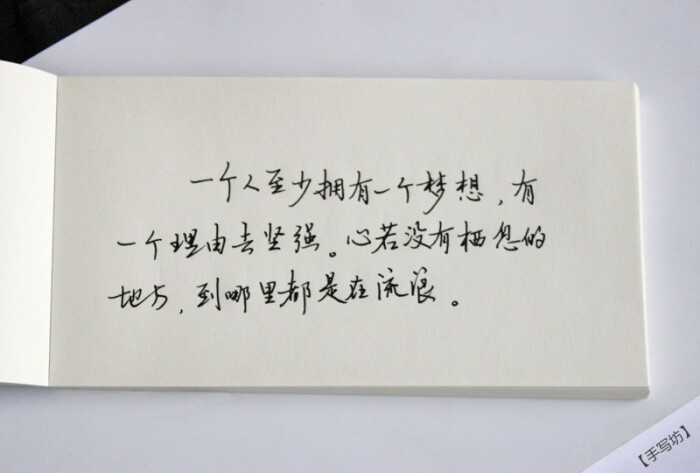 一个人至少拥有一个梦想，有
一个理由去坚强。心若没有栖息的
地方，到哪里都是在流浪。
【手写坊】